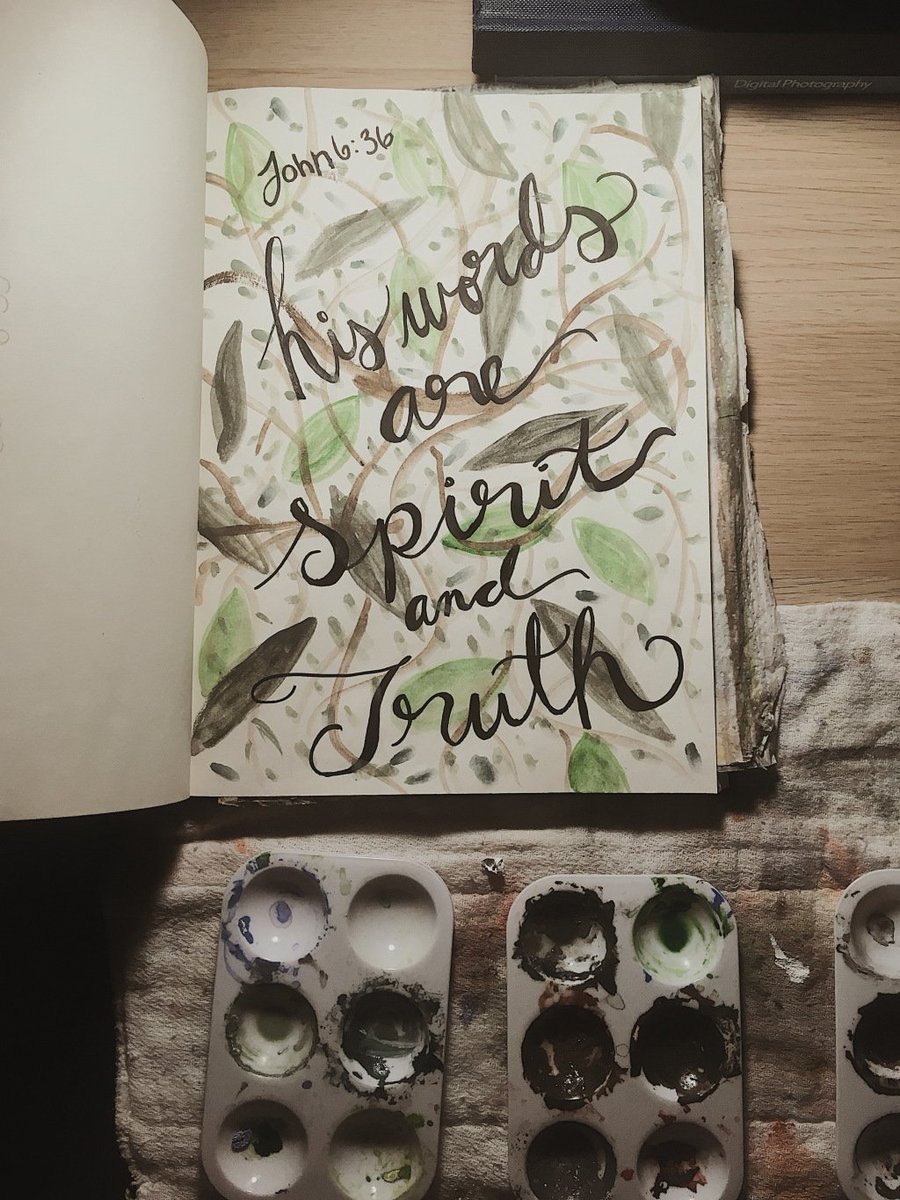 Digital Photography
John 6:36
his words
are
spirit
and
Truth